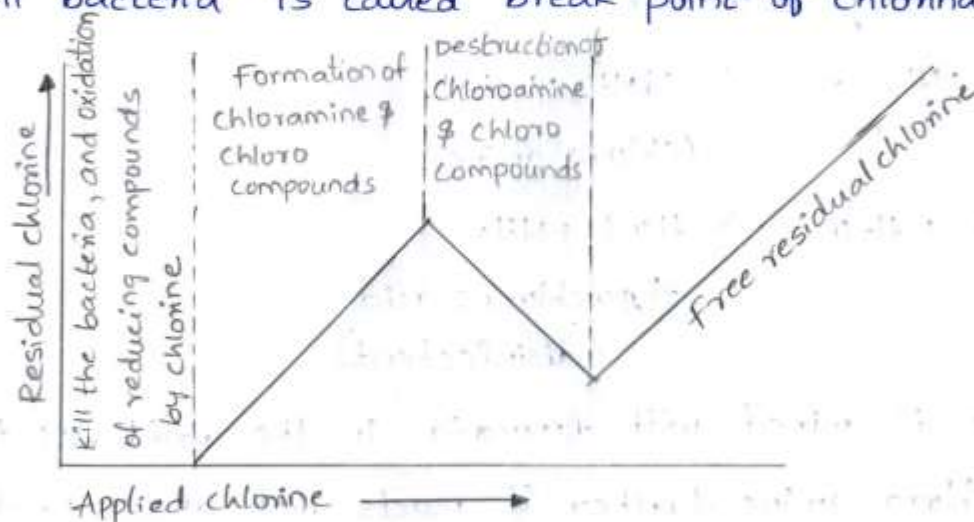 bacteria is called break point of
Residual chlorine
Kill the bacteria, and oxidation
of reducing compounds
by chlorine
Formation of
chloramine &
chloro
compounds
Destruction of
Chloroamine
& chloro
compounds
Free residual chlorine
Applied chlorine